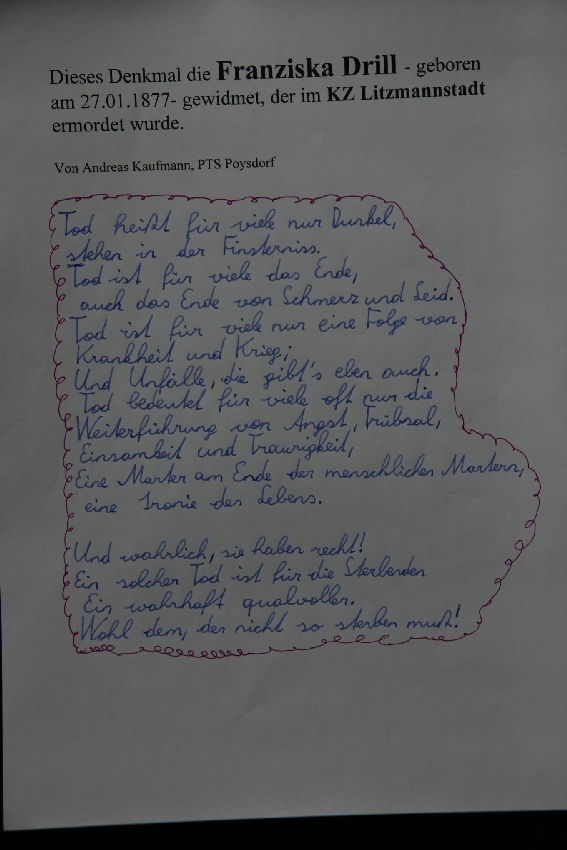 Dieses Denkmal die Franziska Drill - geboren
am 27.01.1877- gewidmet, der im KZ Litzmannstadt
ermordet wurde.
Von Andreas Kaufmann, PTS Poysdorf
Tod heißt für viele nur Dunkel,
stehen in der Finsterniss.
Tod ist für viele das Ende,
auch das Ende von Schmerz und Leid.
Tod ist für viele nur eine Folge von
Krankheit und Krieg;
Und Unfälle, die gibt's eben auch.
Tod bedeutet für viele oft nur die
Weiterführung von Angst, Trübsal,
Einsamkeit und Traurigkeit,
Eine Marter am Ende der menschlichen Martern,
eine Ironie des Lebens.
Und wahrlich, sie haben recht!
Ein solcher Tod ist für die Sterbenden
Ein wahrhaft qualvoller.
Wohl dem, der nicht so sterben muß!